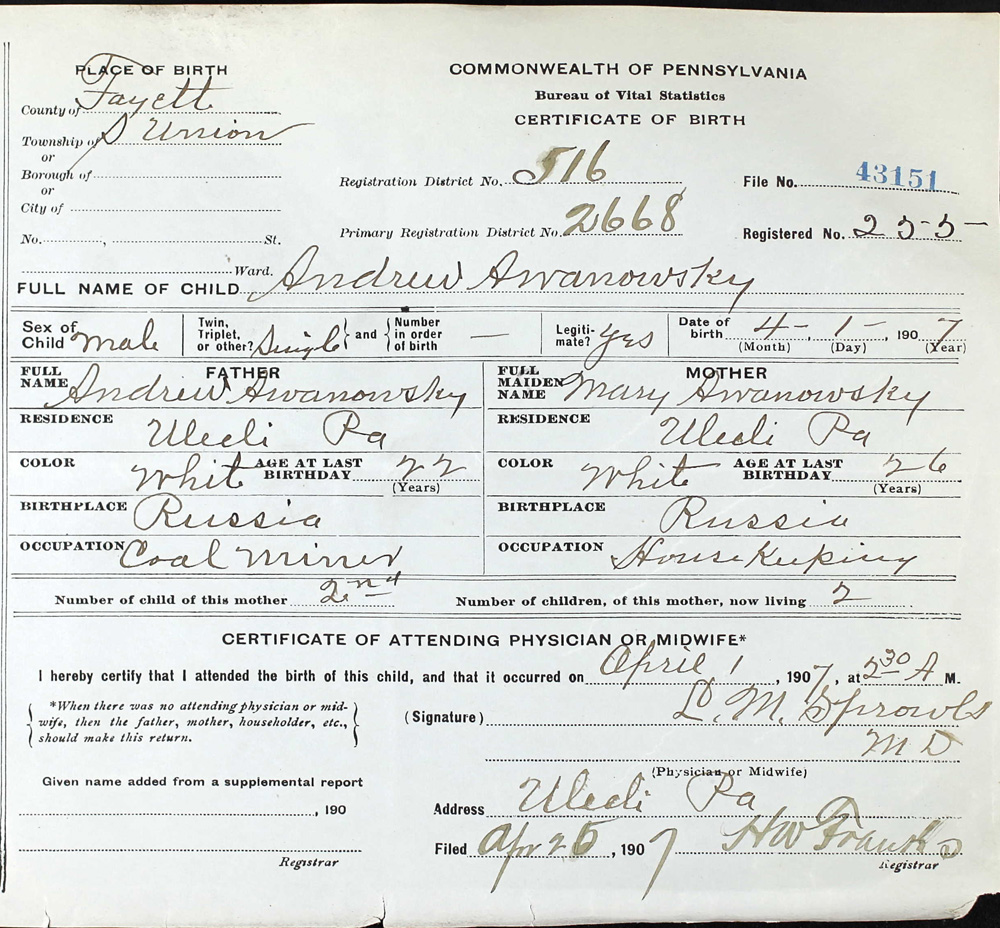 PLACE OF BIRTH
County of Fayett
Township of S Union
or
Borough of
or
City of
No. , St.
Ward.
COMMONWEALTH OF PENNSYLVANIA
Bureau of Vital Statistics
CERTIFICATE OF BIRTH
Registration District No. 516
File No. 43151
Primary Registration District No. 2668
Registered No. 255
FULL NAME OF CHILD Andrew Awanowsky
Sex of Child Male
Twin, Triplet, or other? Single and Number in order of birth —
Legitimate? Yes
Date of birth 4 - 1 - 1907
(Month) (Day) (Year)
FATHER
FULL NAME Andrew Awanowsky
RESIDENCE Uledi Pa
COLOR White AGE AT LAST BIRTHDAY 22
(Years)
BIRTHPLACE Russia
OCCUPATION Coal Minner
MOTHER
FULL MAIDEN NAME Mary Awanowsky
RESIDENCE Uledi Pa
COLOR White AGE AT LAST BIRTHDAY 26
(Years)
BIRTHPLACE Russia
OCCUPATION House Keeping
Number of child of this mother 2nd
Number of children, of this mother, now living 2
CERTIFICATE OF ATTENDING PHYSICIAN OR MIDWIFE*
I hereby certify that I attended the birth of this child, and that it occurred on April 1, 1907, at 2 30 A M.
*When there was no attending physician or mid-
wife, then the father, mother, householder, etc.,
should make this return.
(Signature) L. M. Sprowls
M D
(Physician or Midwife)
Given name added from a supplemental report
, 190
Registrar
Address Uledi Pa
Filed Apr 26, 1907 HW
Registrar